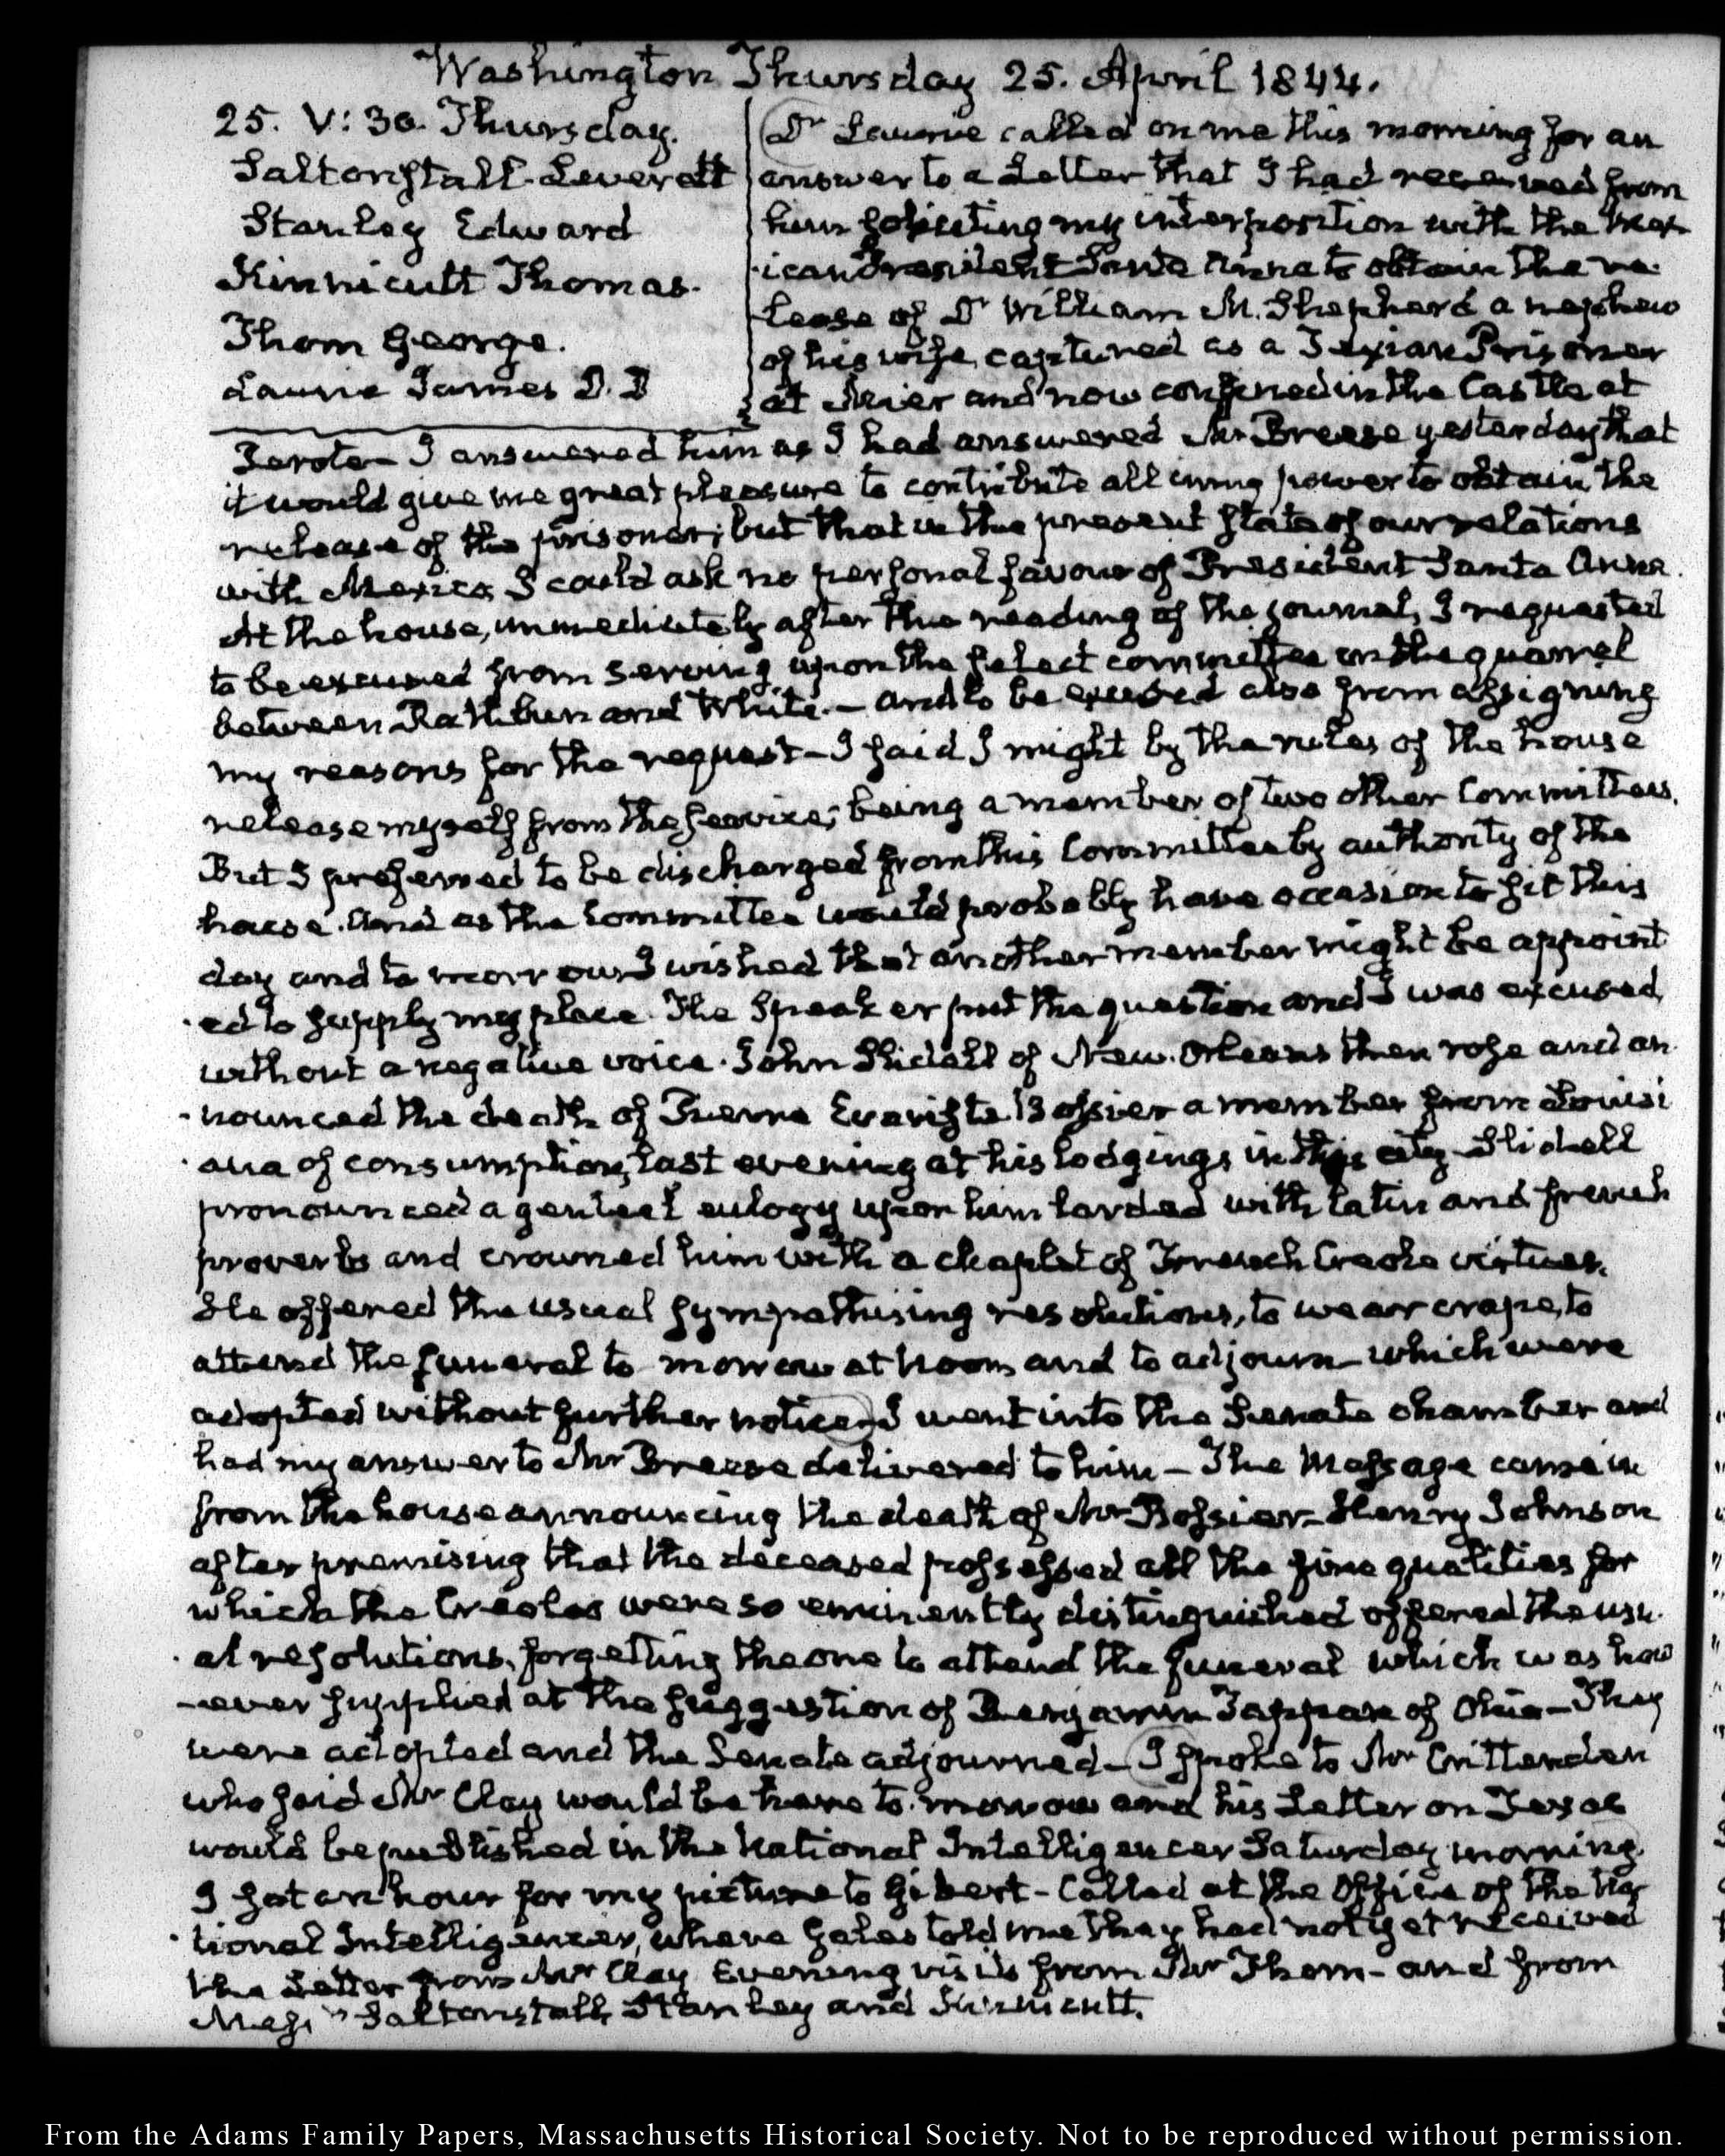 Washington Thursday 25. April 1844.
25. V: 30. Thursday.
Saltonstall. Leverett
Stanley Edward
Kinnicutt Thomas.
Thom George.
Laurie James D.D
Dr Laurie called on me this morning for an
answer to a Letter that I had received from
him soliciting my interposition with the Mex-
ican President Santa Anna to obtain the re-
lease of Dr William M. Shepherd a nephew
of his wife, captured as a Texian Prisoner
at Mier and now confined in the Castle at
Perote— I answered him as I had answered Mr Breese yesterday that
it would give me great pleasure to contribute all in my power to obtain the
release of the prisoner; but that in the present state of our relations
with Mexico, I could ask no personal favour of President Santa Anna.
At the house, immediately after the reading of the journal, I requested
to be excused from serving upon the select committee on the quarrel
between Rathbun and White.— and to be excused also from assigning
my reasons for the request— I said I might by the rules of the house
release myself from the service; being a member of two other Committees.
But I preferred to be discharged from this Committee by authority of the
house. And as the Committee would probably have occasion to sit this
day and to morrow I wished that another member might be appoint
-ed to supply my place. The Speaker put the question and I was excused,
without a negative voice. John Slidell of New. Orleans then rose and an-
-nounced the death of Pierre Evariste Bossier a member from Louisi
-ana of consumption, last evening at his lodgings in this city— Slidell
pronounced a genteel eulogy upon him larded with latin and french
proverbs and crowned him with a chaplet of French Creole virtues.
He offered the usual sympathising resolutions, to wear crape, to
attend the funeral to morrow at noon, and to adjourn— which were
adopted without further notice. I went into the Senate chamber and
had my answer to Mr Breese delivered to him— The Message came in
from the house announcing the death of Mr Bossier— Henry Johnson
after premising that the deceased possessed all the fine qualities for
which the Creoles were so eminently distinguished offered the usu-
-al resolutions, forgetting the one to attend the funeral which was how
-ever supplied at the suggestion of Benjamin Tappan of Ohio— They
were adopted and the Senate adjourned— I spoke to Mr Crittenden
who said Mr Clay would be here to-morrow and his Letter on Texas
would be published in the National Intelligencer Saturday morning.
I sat an hour for my picture to Gibert— Called at the Office of the Na-
-tional Intelligencer, where Gales told me they had not yet received
the Letter from Mr Clay. Evening visits from Mr Thom— and from
Messrs Saltonstall, Stanley and Kinnicutt.
From the Adams Family Papers, Massachusetts Historical Society. Not to be reproduced without permission.